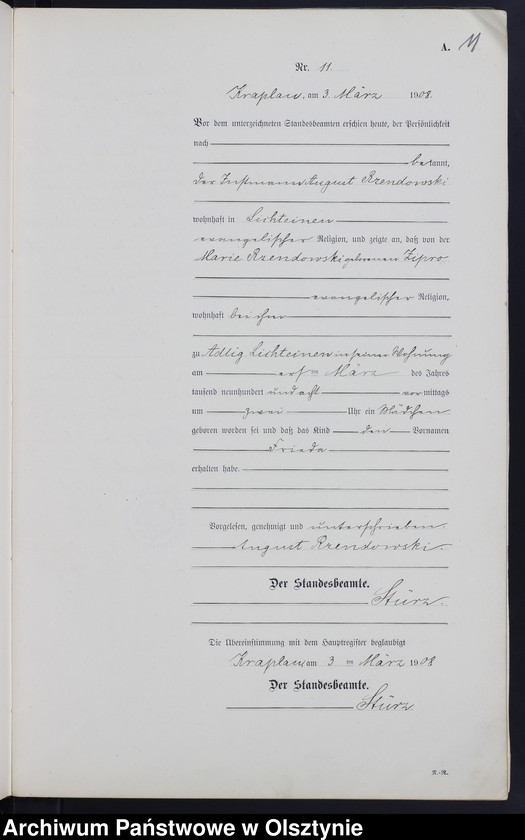 A. 11
Nr. 11.
Kraplau, am 3. März 1908.
Vor dem unterzeichneten Standesbeamten erschien heute, der Persönlichkeit
nach
bekannt,
der Instmann August Rzendowski
wohnhaft in Lichteinen
evangelischer Religion, und zeigte an, daß von der
Marie Rzendowski geborenen Zipro
evangelischer Religion,
wohnhaft bei ihm
zu Adlig Lichteinen in seiner Wohnung
am ersten März des Jahres
tausend neunhundert und acht vormittags
um zwei Uhr ein Mädchen
geboren worden sei und daß das Kind den Vornamen
Frieda
erhalten habe.
Vorgelesen, genehmigt und unterschrieben.
August Rzendowski.
Der Standesbeamte.
Stürz.
Die Übereinstimmung mit dem Hauptregister beglaubigt
Kraplau, am 3 ten März 1908
Der Standesbeamte.
Stürz
N.-R.
Archiwum Państwowe w Olsztynie